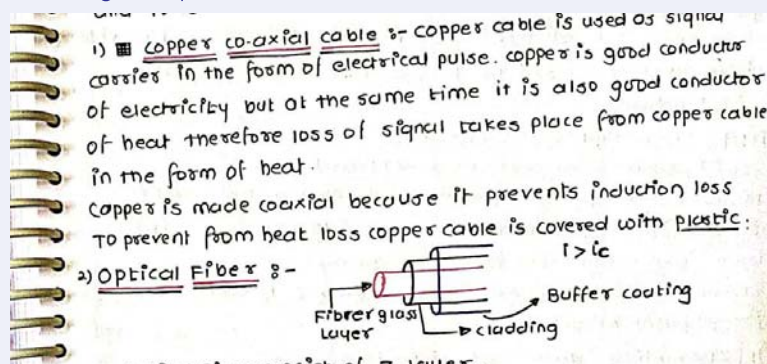 1) copper co-axial cable :- copper cable is used as signal
carrier in the form of electrical pulse. copper is good conductor
of electricity but at the same time it is also good conductor
of heat therefore loss of signal takes place from copper cable
in the form of heat.
copper is made coaxial because it prevents induction loss
To prevent from heat loss copper cable is covered with plastic.
2) Optical Fiber :-
i > ic
Buffer coating
Fibrer glass
Layer
cladding
layer